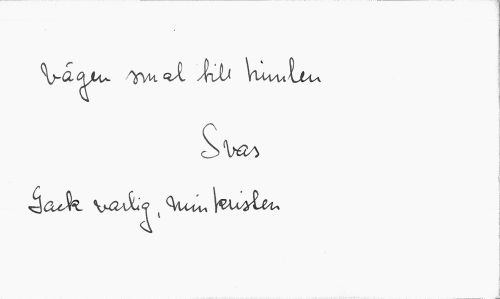 Vägen smal till himlen
Svas
Gack varlig, min kristen